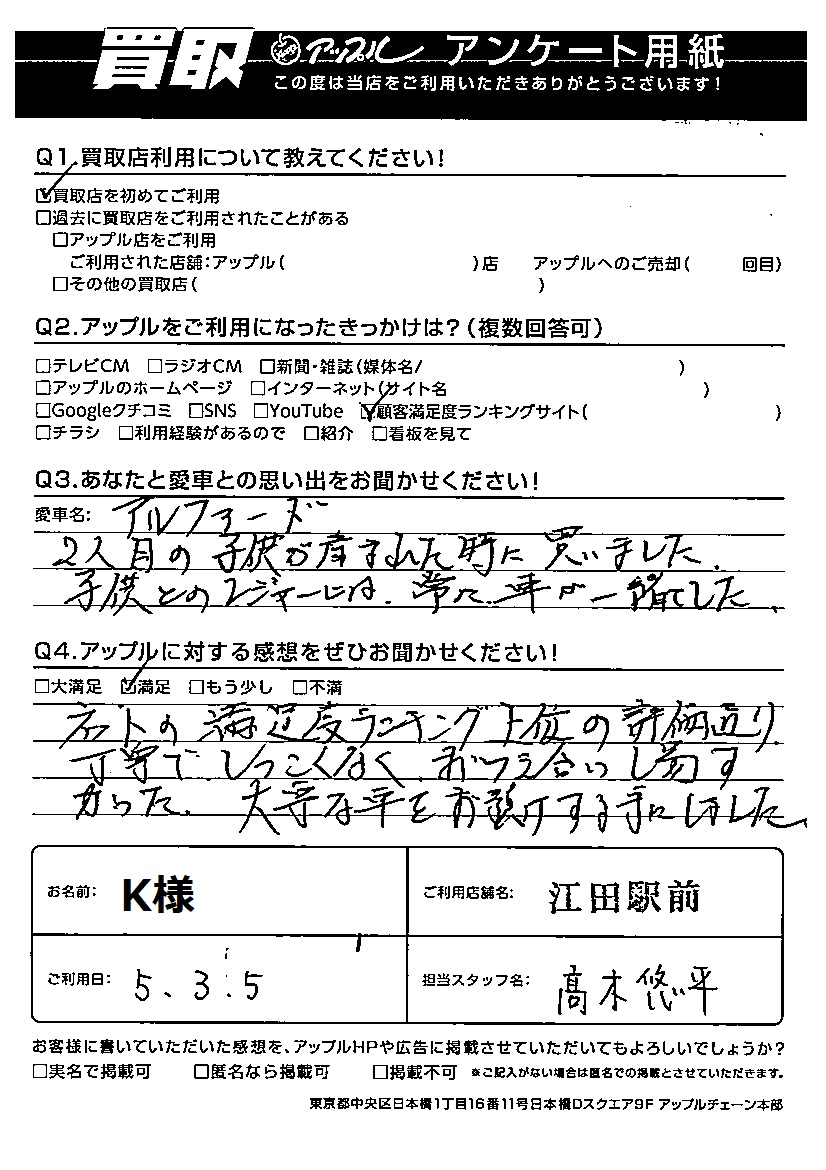 買取 アップル アンケート用紙
この度は当店をご利用いただきありがとうございます!
Q1.買取店利用について教えてください!
☑買取店を初めてご利用
□過去に買取店をご利用されたことがある
□アップル店をご利用
ご利用された店舗:アップル( )店 アップルへのご売却( 回目)
□その他の買取店( )
Q2.アップルをご利用になったきっかけは?(複数回答可)
□テレビCM □ラジオCM □新聞・雑誌(媒体名/ )
□アップルのホームページ □インターネット(サイト名 )
□Googleクチコミ □SNS □YouTube ☑顧客満足度ランキングサイト( )
□チラシ □利用経験があるので □紹介 □看板を見て
Q3.あなたと愛車との思い出をお聞かせください!
愛車名: アルファード
2人目の子供が産まれた時に買いました.
子供とのレジャーには、常に車が一緒でした、
Q4.アップルに対する感想をぜひお聞かせください!
□大満足 ☑満足 □もう少し □不満
ネットの満足度ランキング上位の評価通り
丁寧で しつこくなく、おつき合いし易す
かった. 大事な車をお預けする事にしました、
お名前: K様
ご利用店舗名: 江田駅前
ご利用日: 5、3.5
担当スタッフ名: 高木悠平
お客様に書いていただいた感想を、アップルHPや広告に掲載させていただいてもよろしいでしょうか?
□実名で掲載可 □匿名なら掲載可 □掲載不可 ※ご記入がない場合は匿名での掲載とさせていただきます。
東京都中央区日本橋1丁目16番11号日本橋Dスクエア9F アップルチェーン本部